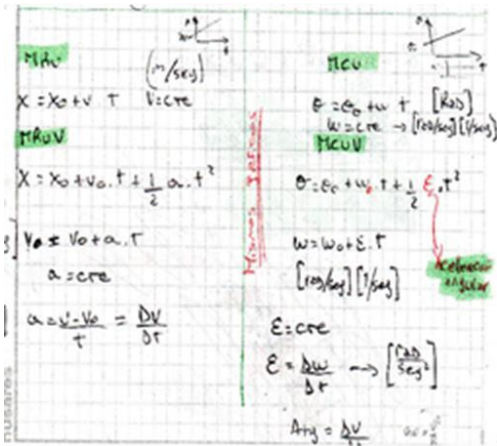 MRU
(m/seg)
X = X₀ + v T V = cte
MRUV
X = X₀ + V₀ . t + 1/2 a . t²
V₀ = V₀ + a . T
a = cte
a = v - V₀ / t = ΔV / Δt
MCU
θ = θ₀ + w t [RAD]
w = cte → [rad/seg] [1/seg]
MCUV
θ = θ₀ + w₀ . t + 1/2 ε . t²
w = w₀ + ε . t
[rad/seg] [1/seg]
angular
ε = cte
ε = Δw / Δt → [rad / seg²]
Atg = ΔV